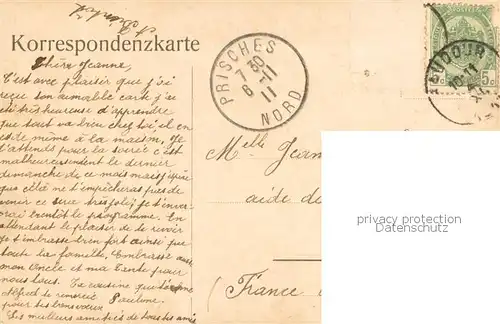 Korrespondenzkarte
Chère Jeanne
C'est avec plaisir que j'ai
reçu ton aimable carte j'ai
été très heureuse d'apprendre
que tout va bien chez toi il en
est de même à la maison, Je
t'attends pour la soirée c'est
malheureusement le dernier
dimanche de ce mois mais j'espère
que cela ne t'empêcheras pas de
venir ce sera très joli; je t'enver-
rai bientôt le programme. En
attendant le plaisir de te revoir
je t'embrasse bien fort ainsi que
toute la famille, Embrasse aussi
mon Oncle et ma Tante pour
nous tous. Ta cousine qui t'aime
Alfred te remercie Pauline
pour tes bons vœux
Les meilleurs amitiés de tous tes amis
PRISCHES
7 30
8 -11
11
NORD
5c
Melle Jean
aide de
France
privacy protection
for Ansichtskarten-Lexikon